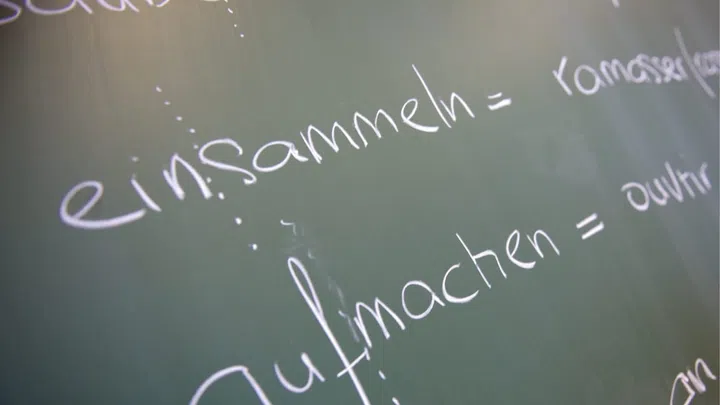 einsammeln = ramasser/
aufmachen = ouvrir
an